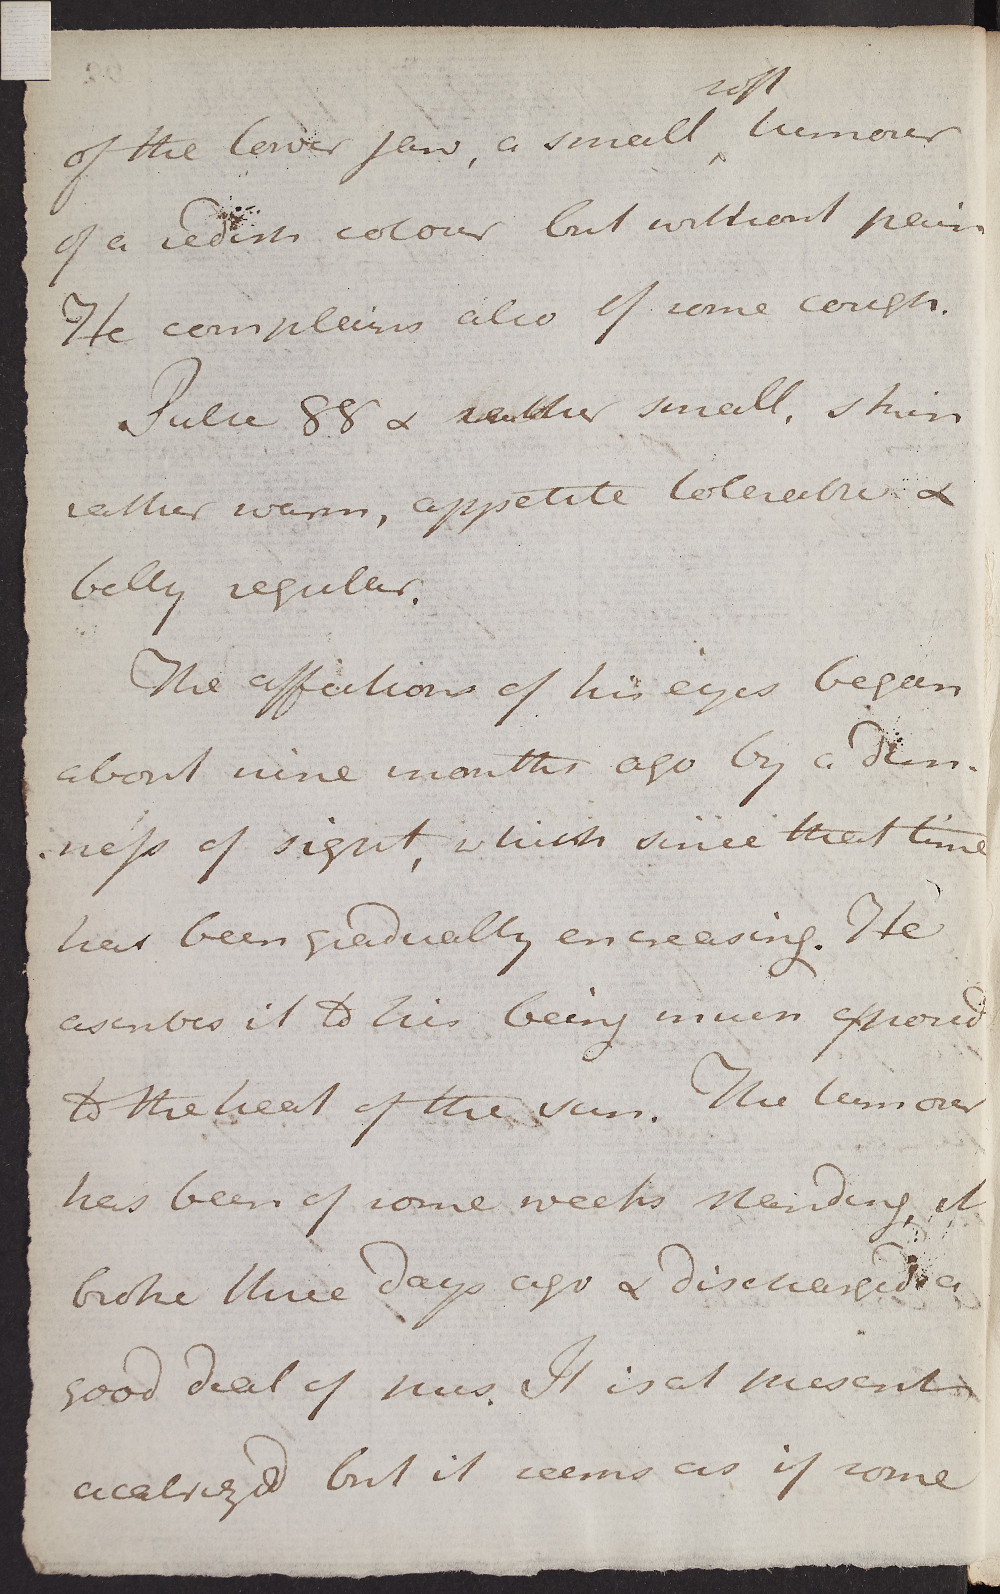 of the lower jaw, a small ^soft tumour
of a redish colour but without pain
He complains also of some cough.
Pulse 88 & rather small, skin
rather warm, appetite tolerable &
belly regular.
The affections of his eyes began
about nine months ago by a dim-
-ness of sight, which since that time
has been gradually encreasing. He
ascribes it to his being much exposed
to the heat of the sun. The tumour
has been of some weeks standing, it
broke three days ago & discharged a
good deal of pus. It is at present
cicatrized but it seems as if some